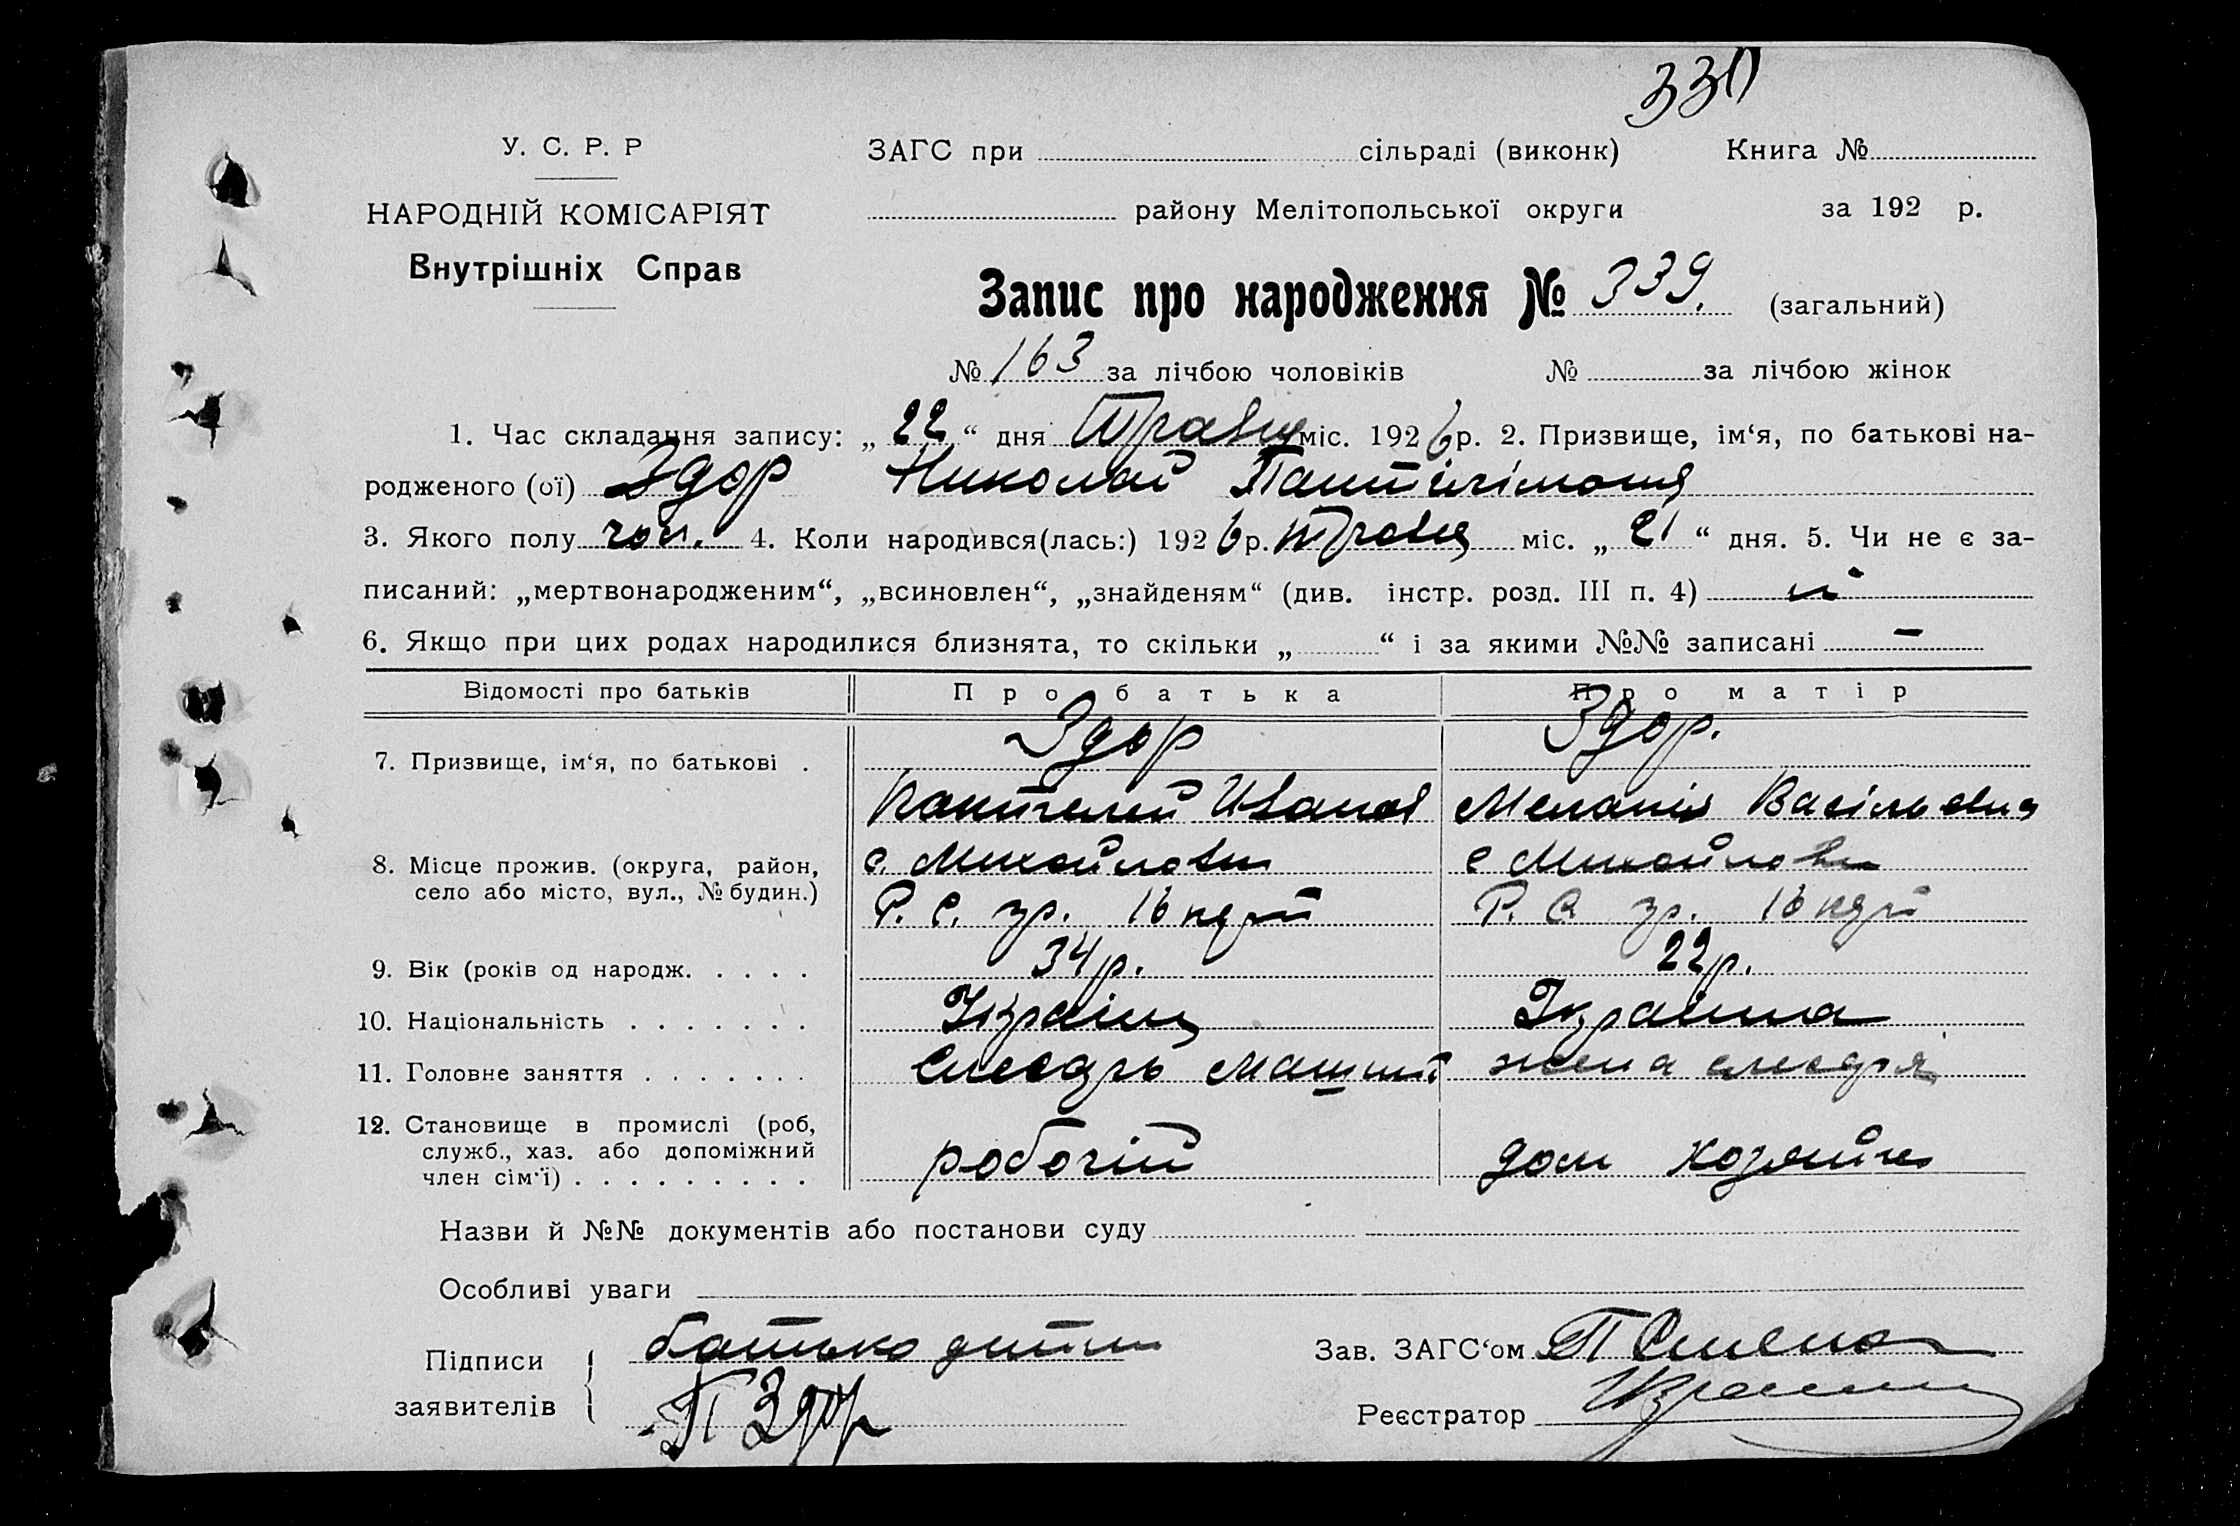 330
У. С. Р. Р
НАРОДНІЙ КОМІСАРІЯТ
Внутрішніх Справ
ЗАГС при сільраді (виконк) Книга №
району Мелітопольської округи за 192 р.
Запис про народження № 339. (загальний)
№ 163 за лічбою чоловіків № за лічбою жінок
1. Час складання запису: „22“ дня Травня міс. 1926 р. 2. Призвище, ім‘я, по батькові на-
родженого (ої) Здор Николай
3. Якого полу чол. 4. Коли народився(лась:) 1926 р. травня міс. „21“ дня. 5. Чи не є за-
писаний: „мертвонародженим“, „всиновлен“, „знайденям“ (див. інстр. розд. III п. 4)
6. Якщо при цих родах народилися близнята, то скільки „ “ і за якими №№ записані —
Відомості про батьків Про батька Про матір
7. Призвище, ім‘я, по батькові . Здор Здор.
Пантелей Иванов Меланія Васільевна
8. Місце прожив. (округа, район, с. Михайловки с Михайловки
село або місто, вул., № будин.) Р. С. гр. 16 Р. С. гр. 16
9. Вік (років од народж. . . . . 34 р. 22 р.
10. Національність . . . . . . . Українц Українка
11. Головне заняття . . . . . . . Слесарь машиніс жена слесаря
12. Становище в промислі (роб,
служб., хаз. або допоміжний робочій дом хозяйка
член сім‘ї) . . . . . . . . .
Назви й №№ документів або постанови суду
Особливі уваги
Підписи батько дитини Зав. ЗАГС‘ом
заявителів П Здор Реєстратор